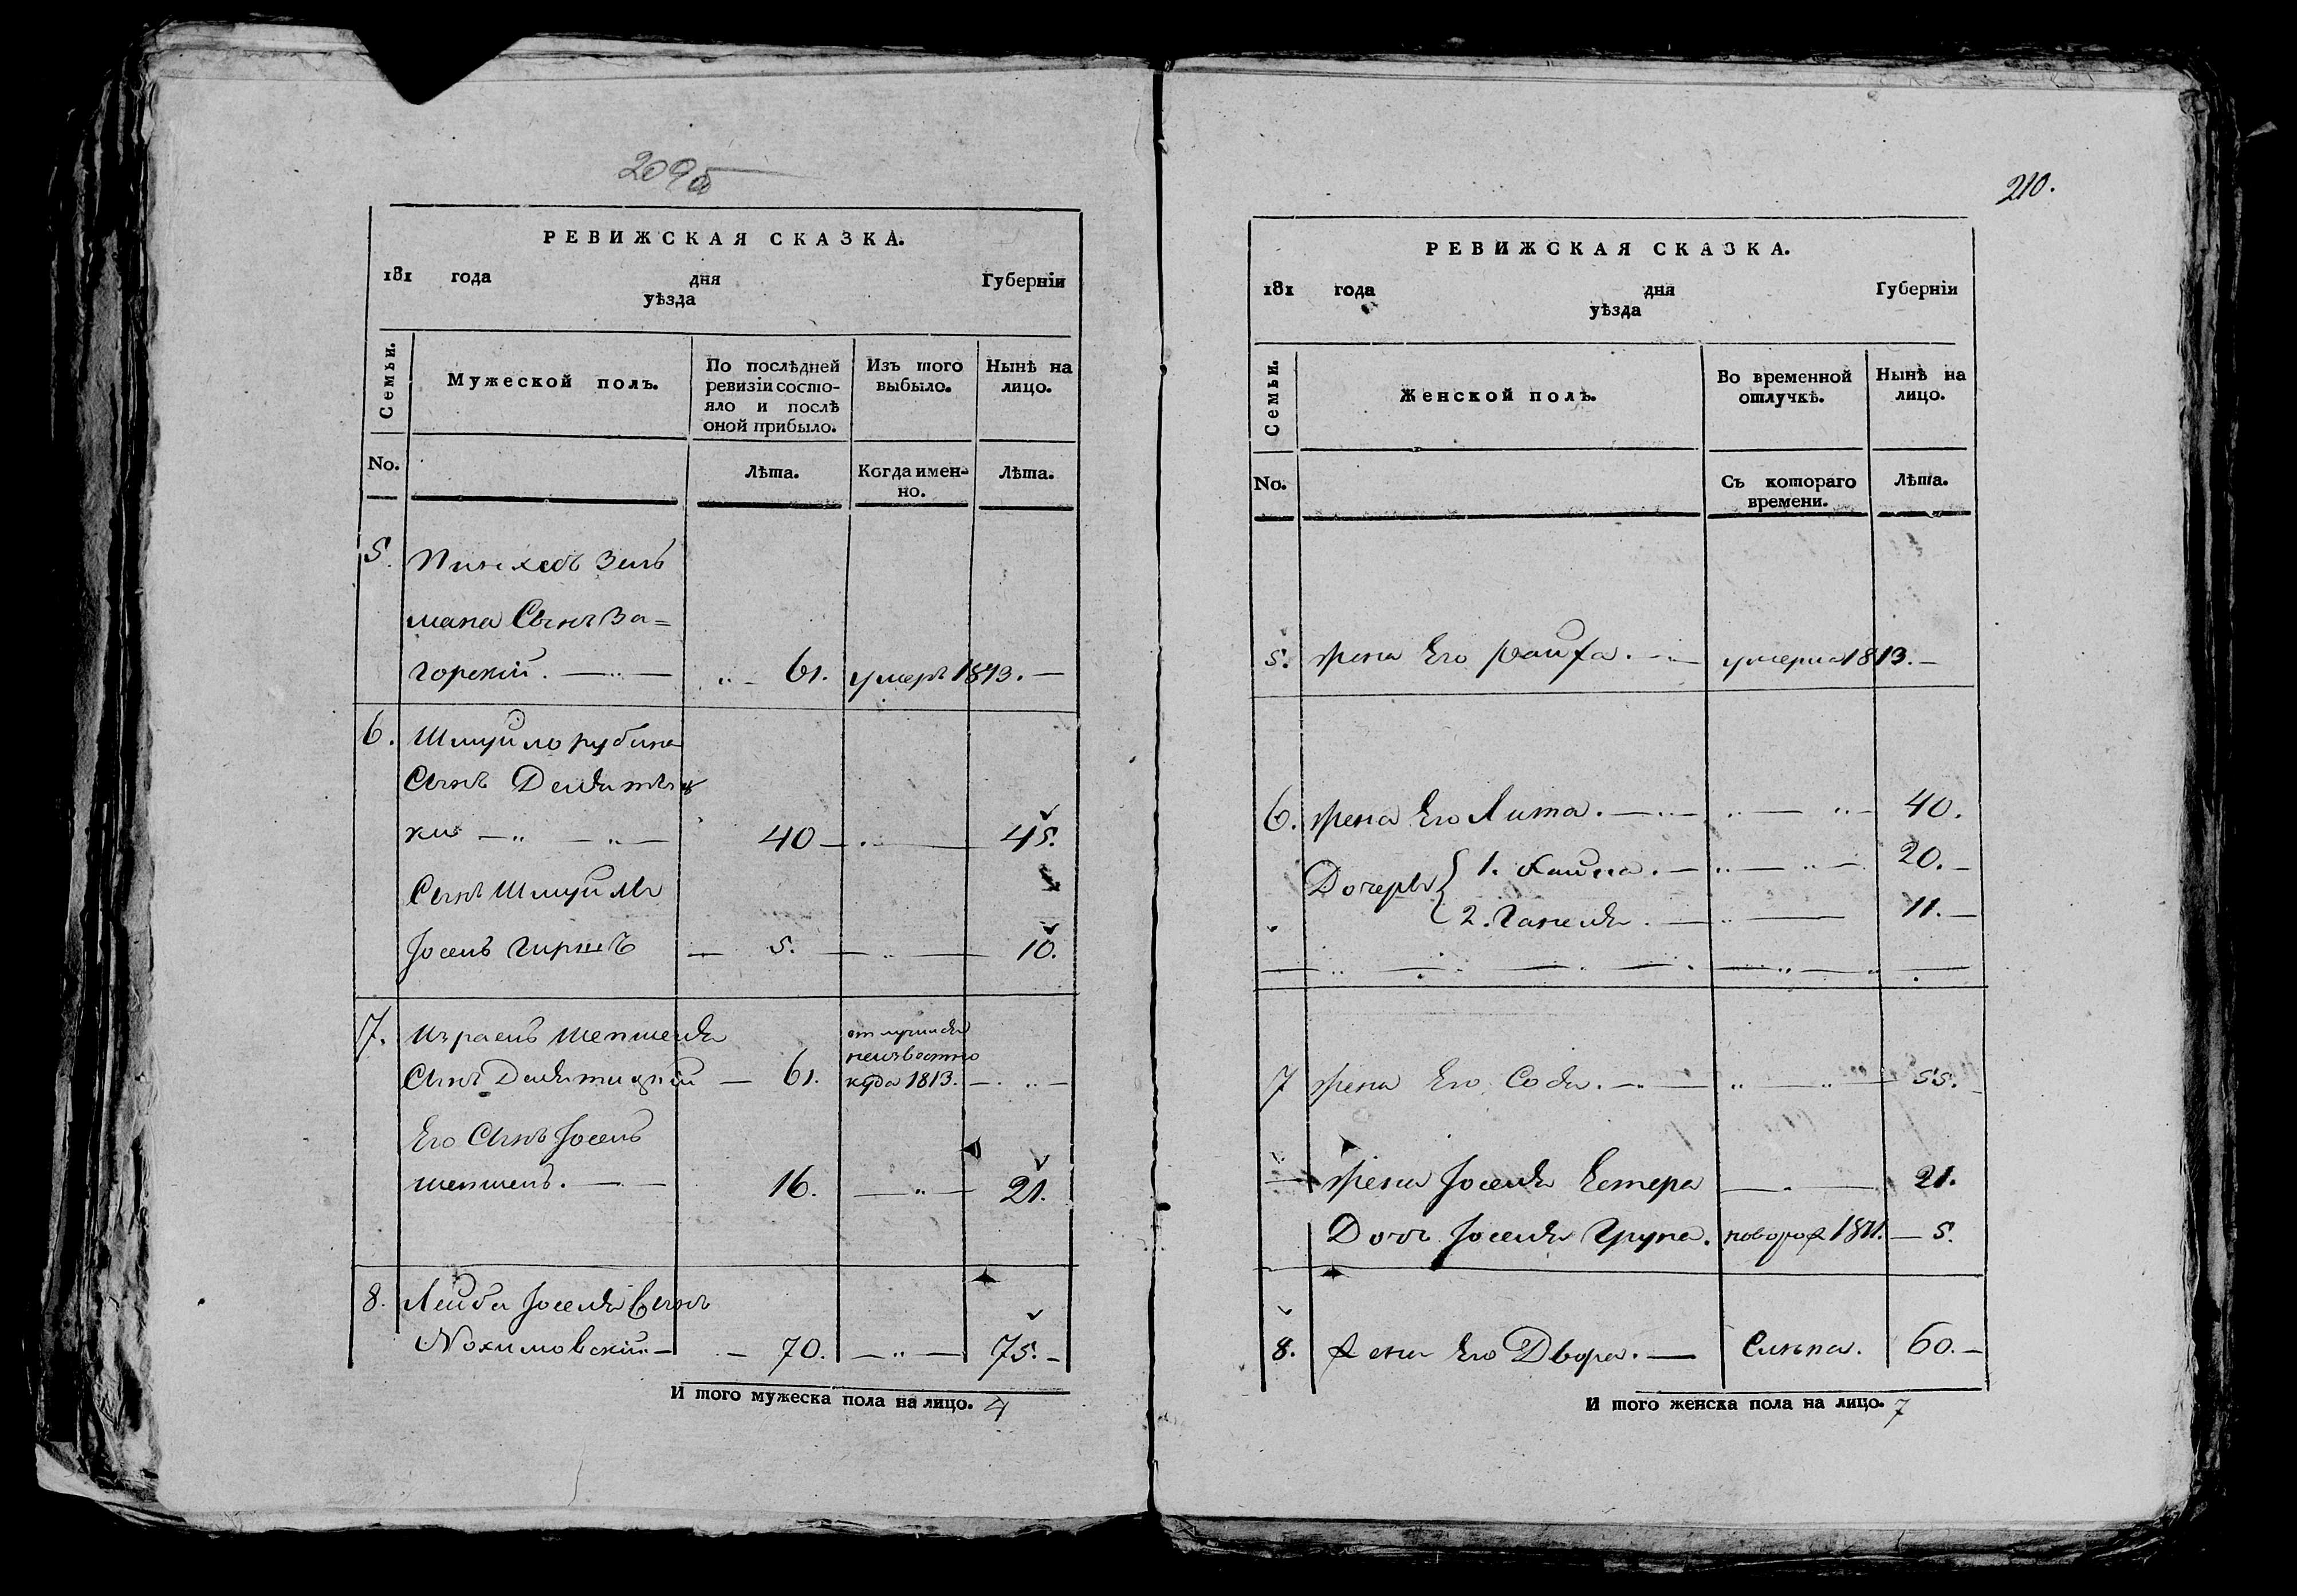 209об
РЕВИЖСКАЯ СКАЗКА.
181 года дня Губерніи
уѣзда
Семьи.
Мужеской полъ.
По послѣдней ревизіи состо-
яло и послѣ
оной прибыло.
Изъ того
выбыло.
Нынѣ на
лицо.
No.
Лѣта.
Когда имен-
но.
Лѣта.
5. Пинхасъ Зель
мана Сынъ За=
горскій. 61. умеръ 1813.
6. Шмуйло рубина
Сынъ
40 45.
Сынъ Шмуйлы
Іосель Гиршъ 5. 10.
7. Израель Шепшеля
Сынъ 61.
отлучился
неизвестно
куда 1813.
Его Сынъ Іосель
шепшель. 16. 21.
8. Лейба Іоселя Сынъ
Нохимовский 70. 75.
И того мужеска пола на лицо. 4
210.
РЕВИЖСКАЯ СКАЗКА.
181 года дня Губерніи
уѣзда
Семьи.
Женской полъ.
Во временной
отлучкѣ.
Нынѣ на
лицо.
No.
Съ котораго
времени.
Лѣта.
5. жена Его райфа. умерла 1813.
6. жена Его Лита. 40.
Дочери 1. Хайна. 20.
2. Ганеля. 11.
7 жена Его Содя. 55.
жена Іоселя Естера 21.
Дочь Іоселя Груна. новорож 1811. 5.
8. жена Его Двора. Слѣпа. 60.
И того женска пола на лицо. 7